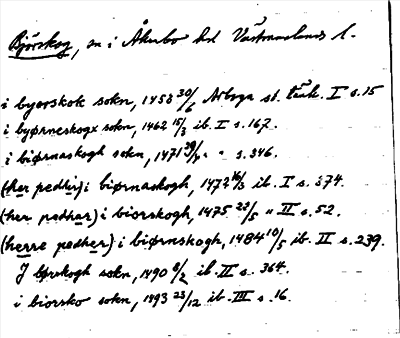 Björskog, sn i Åkerbo hd Västmanlands l.
i byorskok sokn, 1458 30/6 Arboga st. tänk. I s.15
i byørneskogx sokn, 1462 15/3 ib. I s.167.
i biørnaskogh sokn, 1471 29/4 " " s.346.
(her pedhir) i biørnaskogh, 1472 16/3 ib. I s.374.
(her pedhar) i biorskogh, 1475 22/5 " II s.52.
(herre pedher) i biørnskogh, 1484 10/5 ib. II s.239.
J børskogh sokn, 1490 8/2 ib. II s.364.
i biorsko sokn, 1493 23/12 ib. III s.16.